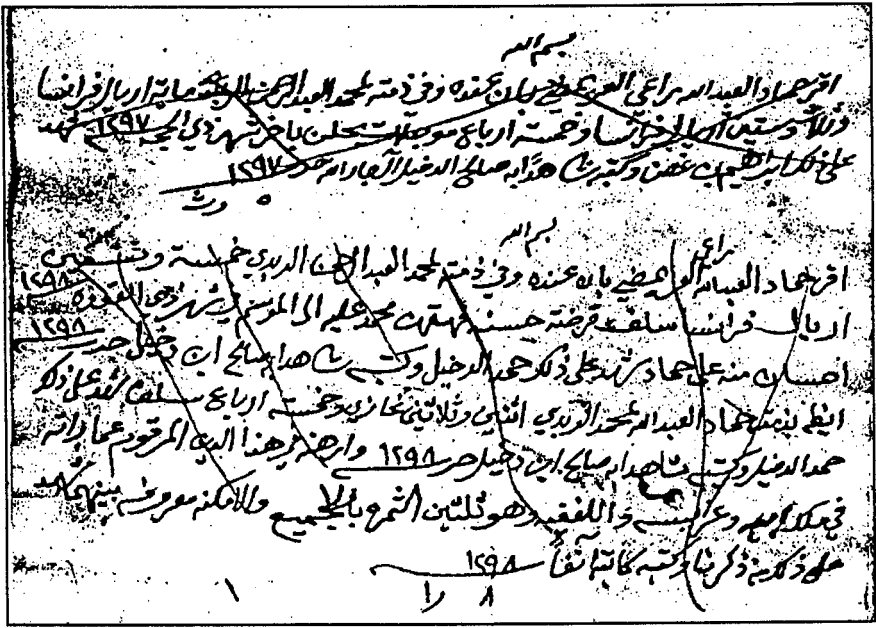 بسم الله
اقر حماد العبدالله راعي العريمضي بان عنده وفي ذمته لمحمد العبدالرحمن الربدي مائة اريال فرانسا
وثلاث وستين اريال فرانسا وخمسة ارباع مؤجلات يحلن باخر شهر ذي الحجه ١٢٩٧ شهد
على ذلك ابراهيم بن غصن وكتبه شاهدا به صالح الدخيل الجارالله حرر ١٢٩٧
بسم الله
اقر حماد العبدالله راعي العريمضي بان عنده وفي ذمته لمحمد العبدالرحمن الربدي خمسة وتسعين
اريال فرانسا سلف قرضة حسنه محمد عليه الى الموسم شهر ذي القعده ١٢٩٨
احسان منه على حماد شهد على ذلك حمد الدخيل وكتبه شاهدا به صالح ابن دخيل حرر ١٢٩٨
ايظا بذمة حماد العبدالله لمحمد الربدي اثنين وثلاثين غازي وخمسة ارباع سلف شهد على ذلك
حمد الدخيل وكتبه شاهدا به صالح ابن دخيل حرر ١٢٩٨ وارهنه بهذا الدين المرقوم عمارته
في ملك وعريسه واللفقيه وهو ثلثين الثمره بالجميع والامكنه معروفه بينهم شهد
على ذلك من ذكرنا وكتبه كاتبه آنفا ١٢٩٨